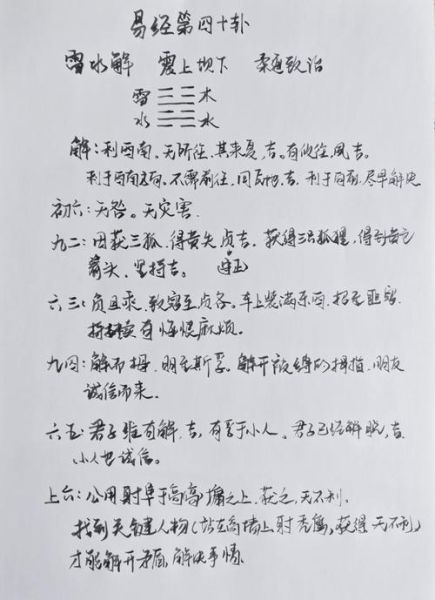 易经第四十卦
雷水解 震上坎下 柔道致治
雷 木
水 水
解:利西南,无所往,其来复,吉。有攸往,夙吉。
利于西南方向,不需前往,回到,吉,利于向前,尽早解决
初六:无咎。无灾害.
九二:田获三狐,得黄矢,贞吉。获得三只狐狸,得到黄色
箭头,坚持吉。 守正
六三:负且乘,致寇至,贞吝。车上装满东西,招至匪寇
持续有悔恨麻烦。
九四:解而拇,朋至斯孚。解开被缚的拇指,朋友
诚信而来.
六五:君子维有解,吉,有孚于小人。君子已经解脱,吉.
小人也诚信。
上六:公用射隼于高墉之上,获之,无不利.
找到关键人物(站在高墙上射秃鹰,获得无不利)
才能解开矛盾,解决事情.